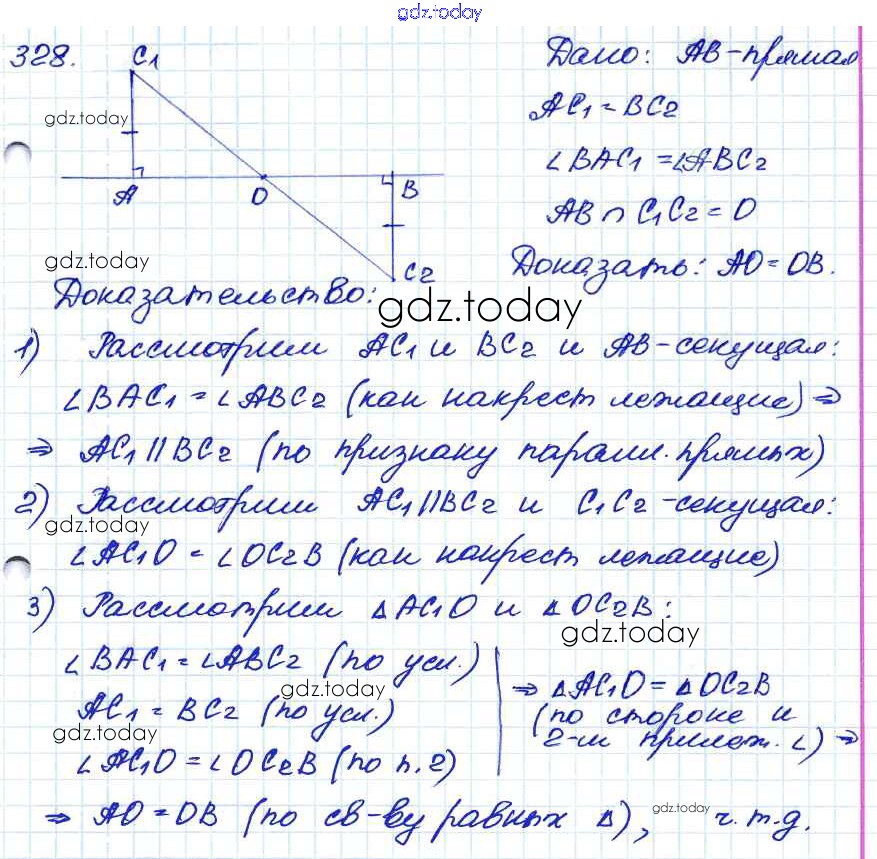 gdz.today
328.
C₁
gdz.today
A
O
B
C₂
gdz.today
Дано: AB-прямая
AC₁ = BC₂
∠BAC₁ = ∠ABC₂
AB ∩ C₁C₂ = O
Доказать: AO = OB.
Доказательство:
gdz.today
1) Рассмотрим AC₁ и BC₂ и AB-секущая:
∠BAC₁ = ∠ABC₂ (как накрест лежащие) ⇒
⇒ AC₁ || BC₂ (по признаку паралл. прямых)
2) Рассмотрим AC₁ || BC₂ и C₁C₂-секущая:
gdz.today
∠AC₁O = ∠OC₂B (как накрест лежащие)
3) Рассмотрим △AC₁O и △OC₂B:
gdz.today
∠BAC₁ = ∠ABC₂ (по усл.)
gdz.today
AC₁ = BC₂ (по усл.)
gdz.today
∠AC₁O = ∠OC₂B (по п. 2)
⇒ △AC₁O = △OC₂B
(по стороне и
2-м прилеж. ∠) ⇒
⇒ AO = OB (по св-ву равных △), ч.т.д.
gdz.today